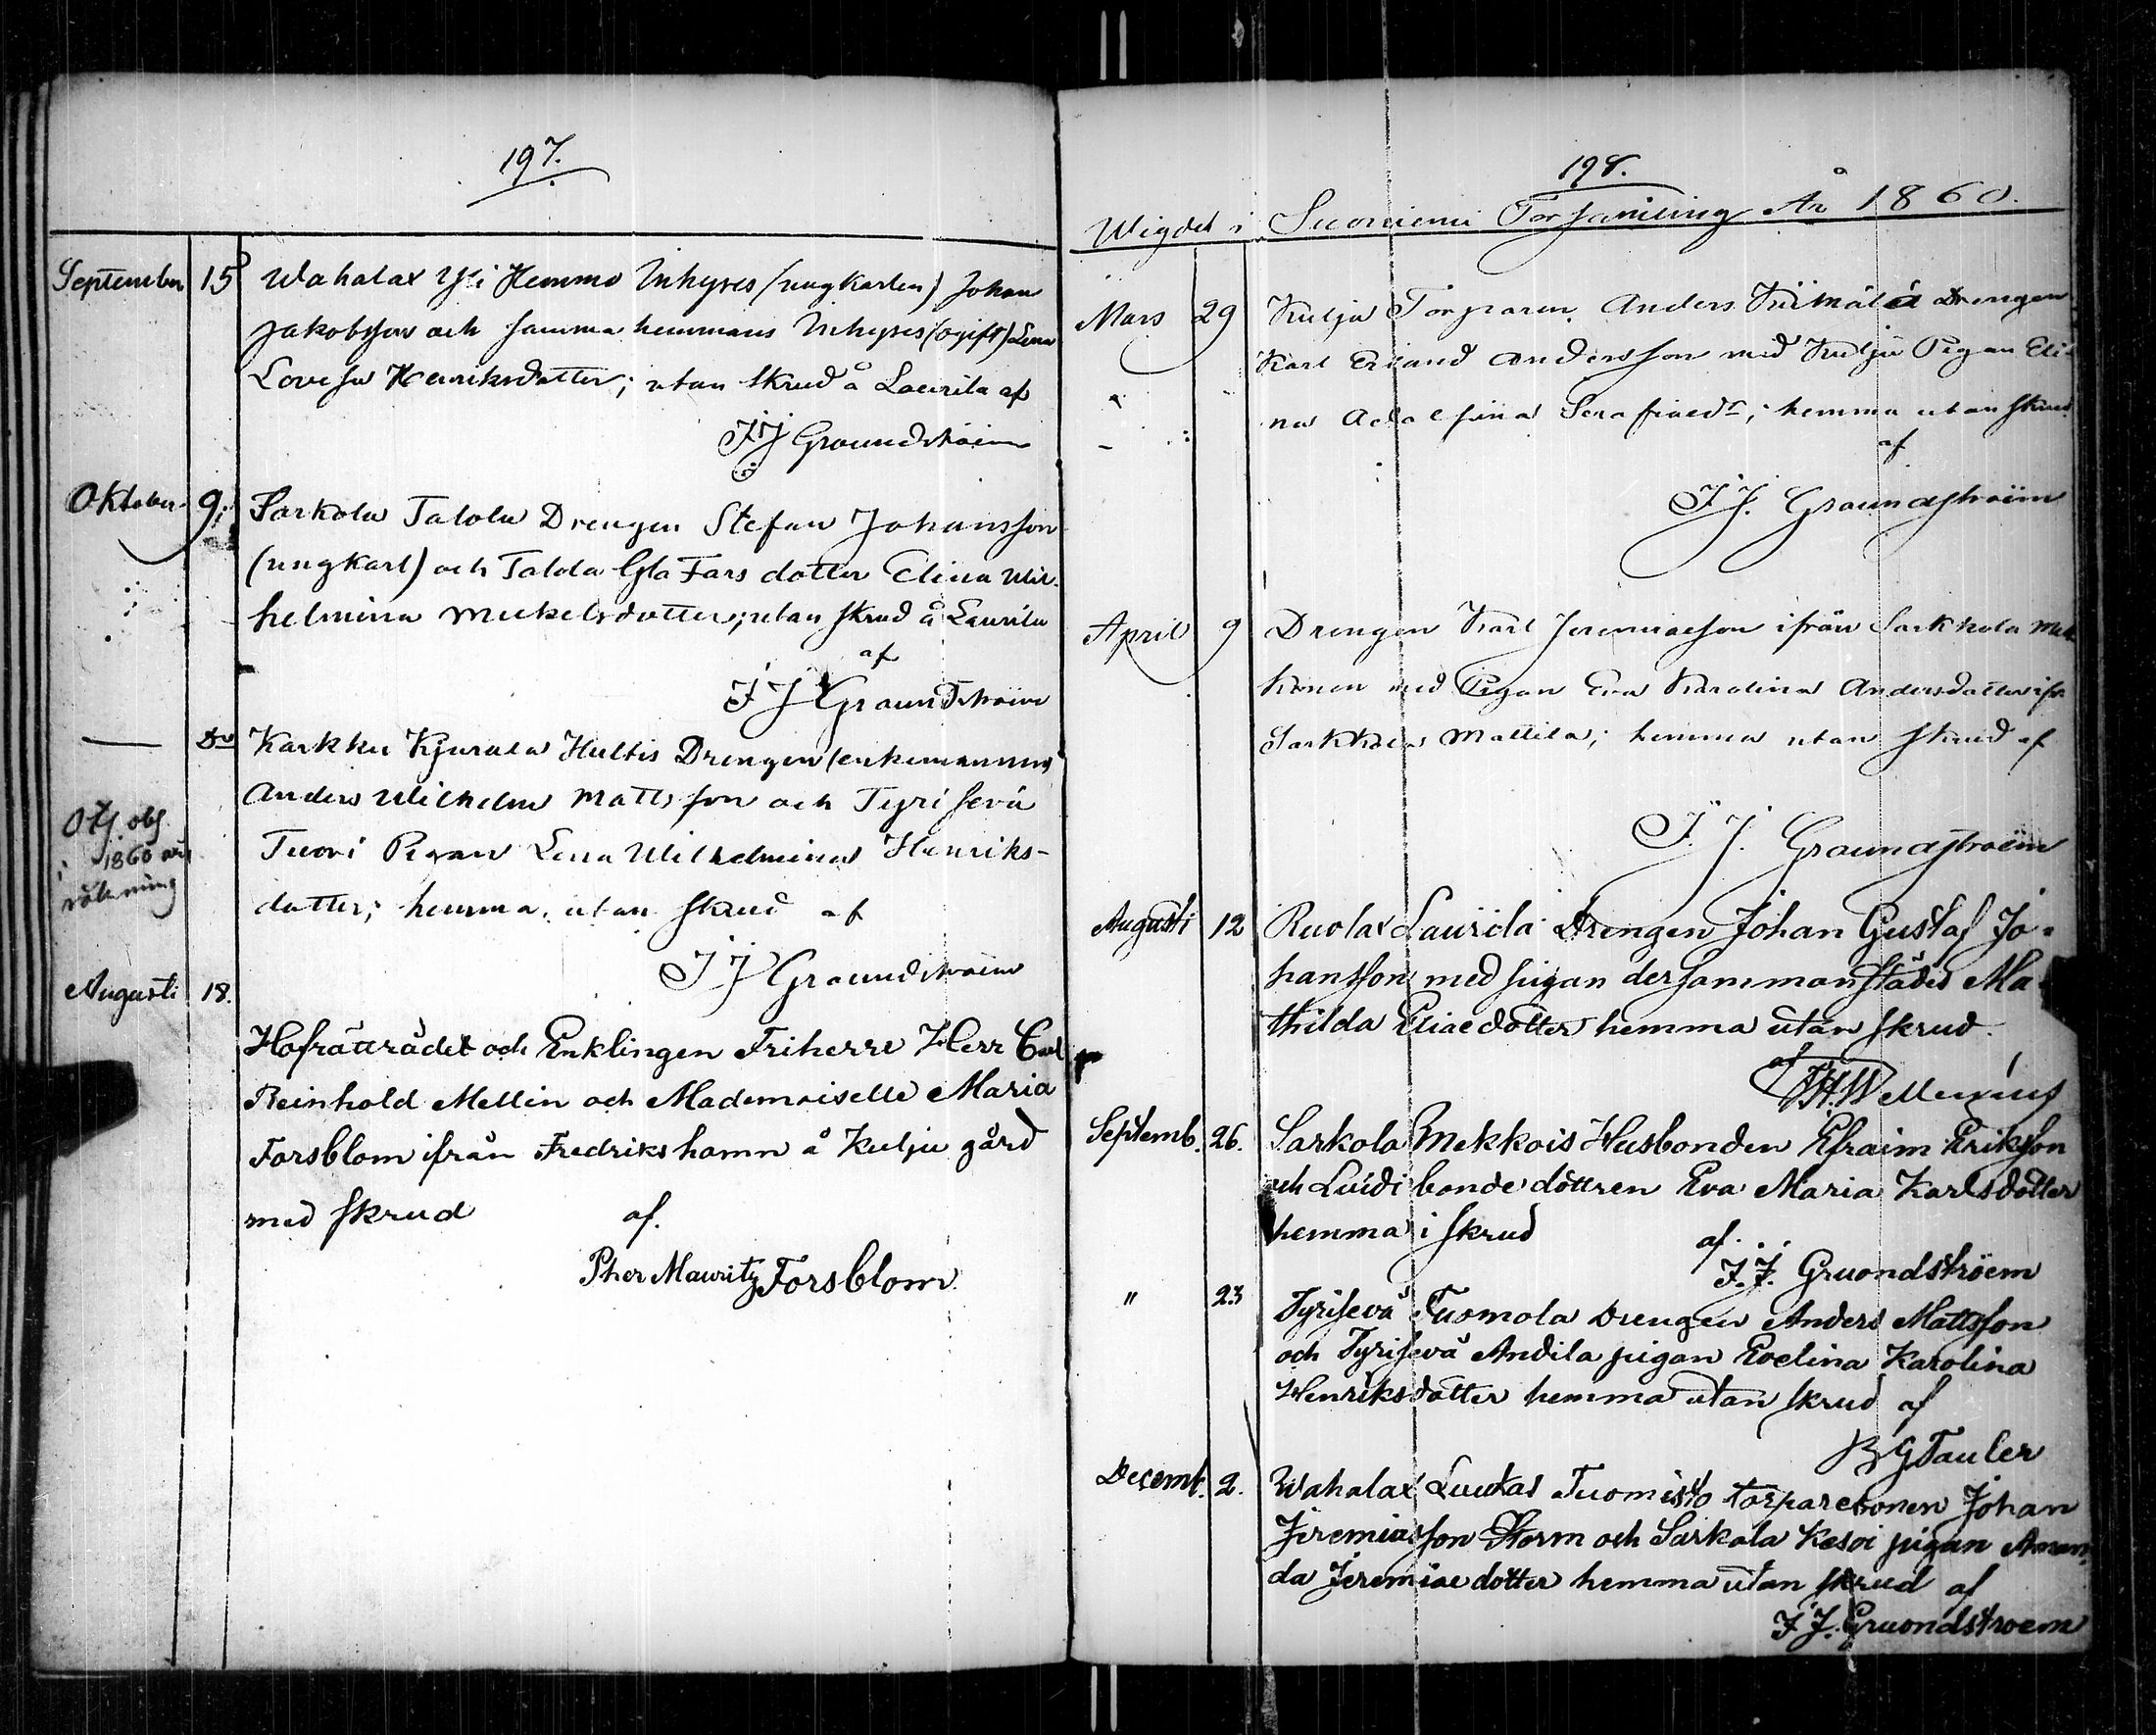 197.
September 15 Wahalax Yli Hemmo Inhyses (ungkarlen) Johan
Jakobsson och samma hemmans Inhyses (ogift) Lena
Lovisa Henriksdotter; utan skrud å Laurila af
F J Graundstroem
Oktober 9. Sarkola Talola Drengen Stefan Johansson
(ungkarl) och Talola Gla Fars dotter Elina Wil-
helmina Mickelsdotter; utan skrud å Laurila
af
F J Graundstroem
— Do Karkku Kjurala Hultis Drengen (enkemannen)
Anders Wilhelm Mattsson och Tyrisevä
Tuori Pigan Lena Wilhelmina Henriks-
dotter; hemma utan skrud af
F J Graundstroem
obs.
i 1860 års
räkning
Augusti 18.
Hofrättrådet och Enklingen Friherre Herr Carl
Reinhold Mellin och Mademoiselle Maria
Forsblom ifrån Fredrikshamn å Kulju gård
med skrud af.
Pher Mauritz Forsblom.
198.
Wigde i Suoniemi Församling År 1860.
Mars 29 Kulju Torparen Anders Drengen
Karl Erland Andersson med Kulju Pigan Eli-
na Adolfina Serafinedr; hemma utan skrud
af
F J. Graundstroem
April 9 Drengen Karl Jeremiaeson ifrån Sarkkola Mek
konen med Pigan Eva Karolina Andersdotter ifr
Sarkkola Mattila; hemma utan skrud af
F. J. Graundstroem
Augusti 12 Ruolax Laurila Drengen Johan Gustaf Jo-
hansson med pigan dersammanstädes Ma-
thilda Eliaedotter hemma utan skrud.
af
Septemb. 26. Sarkola Mekkois Husbonden Efraim Eriksson
och Luidi bonde döttren Eva Maria Karlsdotter
hemma i skrud af.
F. J. Gruondströem
" 23 Tyrisevä Tuomola Drengen Anders Mattsson
och Tyrisevä Andila pigan Evelina Karolina
Henriksdotter hemma utan skrud af
B G Tauler
Decemb. 2. Wahalax Luukas Tuomisto torparesonen Johan
Jeremiasson Storm och Sarkola Kesoi pigan Aman-
da Jeremiaedotter hemma utan skrud af
F J. Gruondstroem